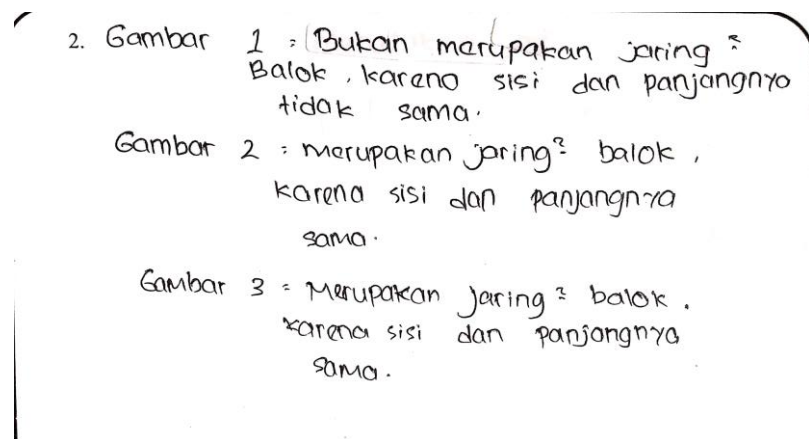 2. Gambar 1 : Bukan merupakan jaring²
Balok, karena sisi dan panjangnya
tidak sama.
Gambar 2 : merupakan jaring² balok,
karena sisi dan panjangnya
sama.
Gambar 3 = Merupakan jaring² balok.
karena sisi dan panjangnya
sama.